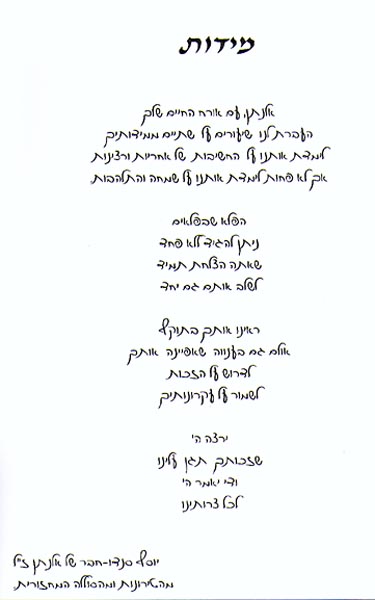 מידות
אלנתן, עם אורח החיים שלך
העברת לנו שיעורים על שתיים ממידותיך
לימדת אותנו על החשיבות של אחריות ורצינות
אך לא פחות לימדת אותנו על שמחה והתלהבות
הפלא שבפלאים
ניתן להגיד ללא פחד
שאתה הצלחת תמיד
לשלב אותם גם יחד
ראינו אותך בתוקף
אולם גם בענווה שאפיינה אותך
לדרוש על הזכות
לשמור על עקרונותיך
ירצה ה'
שזכותך תגן עלינו
ודי יאמר ה'
לכל צרותינו
יוסף סנדו-חבר של אלנתן ז"ל
מהטירונות ומהסוללה המחזורית